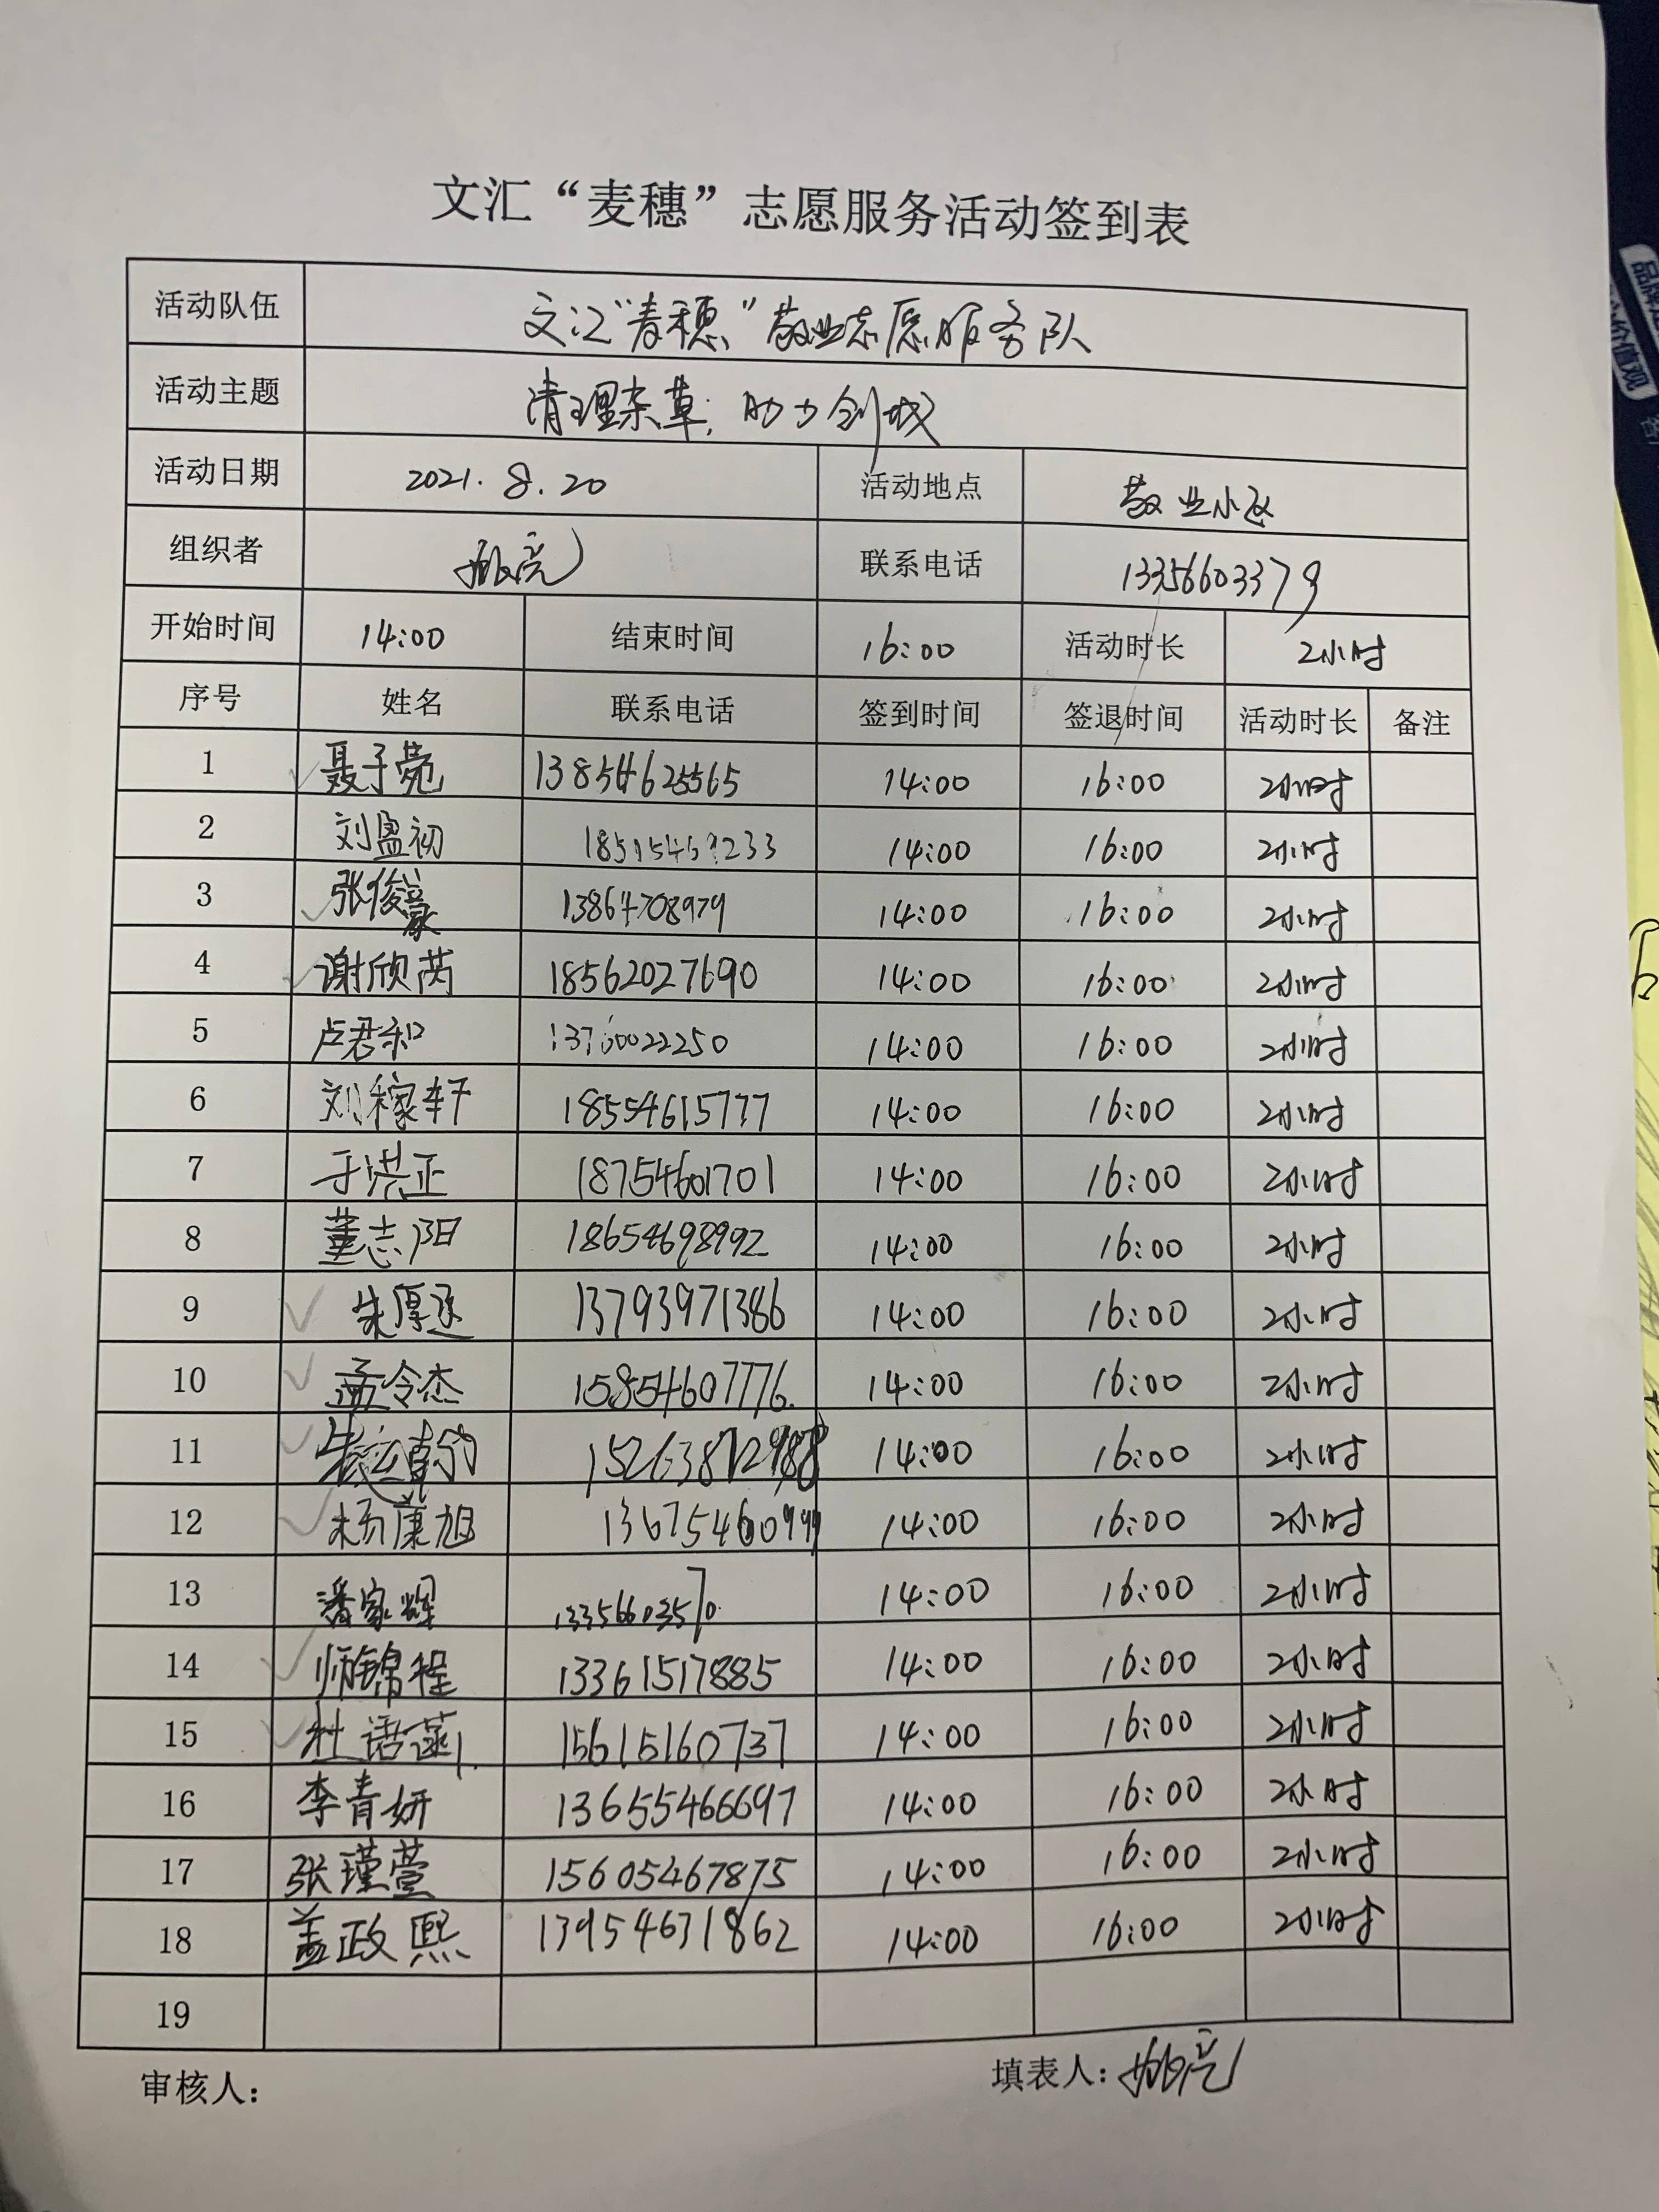 文汇“麦穗”志愿服务活动签到表
活动队伍 文汇“麦穗”敬业志愿服务队
活动主题 清理杂草，助力创城
活动日期 2021.8.20 活动地点 敬业小区
组织者 联系电话 13356603379
开始时间 14:00 结束时间 16:00 活动时长 2小时
序号 姓名 联系电话 签到时间 签退时间 活动时长 备注
1 聂子尧 13854625565 14:00 16:00 2小时
2 刘盈初 14:00 16:00 2小时
3 张俊豪 13864708979 14:00 16:00 2小时
4 谢欣芮 18562027690 14:00 16:00 2小时
5 卢君和 14:00 16:00 2小时
6 刘稼轩 18554615777 14:00 16:00 2小时
7 于洪正 18754601701 14:00 16:00 2小时
8 董志阳 18654698992 14:00 16:00 2小时
9 朱厚丞 13793971386 14:00 16:00 2小时
10 孟令杰 15854607776 14:00 16:00 2小时
11 14:00 16:00 2小时
12 杨康旭 14:00 16:00 2小时
13 潘家辉 14:00 16:00 2小时
14 师锦程 13361517885 14:00 16:00 2小时
15 杜语菡 15615160737 14:00 16:00 2小时
16 李青妍 13655466697 14:00 16:00 2小时
17 张瑾萱 15605467875 14:00 16:00 2小时
18 盖政熙 13954631862 14:00 16:00 2小时
19
审核人： 填表人：